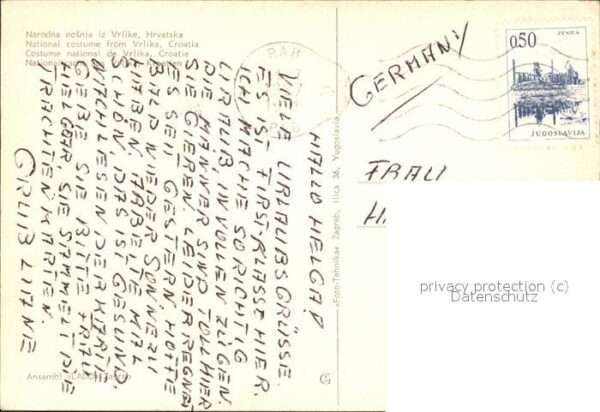 Narodna nošnja iz Vrlike, Hrvatska
National costume from Vrlika, Croatia
Costume national de Vrlika, Croatie
GERMANY
0,50
ZENICA
JUGOSLAVIJA
RAB
HALLO HELGA!
VIELE URLAUBSGRÜSSE.
ES IST FIRST-KLASSE HIER.
ICH MACHE SO RICHTIG
URLAUB, IN VOLLEN ZÜGEN.
DIE MÄNNER SIND TOLL HIER
SIE GIEREN. LEIDER REGNET
ES SEIT GESTERN, HOFFE
BALD WIEDER SONNE ZU
HABEN. HABE ITE MAL
SCHÖN, DAS IST GESUND.
NACH LESEN DER KARTE
GEBE SIE BITTE FRAU
SIE SAMMELT DIE
TRACHTENKARTEN.
GRUß
FRAU
»Foto-Tehnika« Zagreb, Ilica 36, Yugoslavia
Ansambl »LADO« Zagreb
privacy protection (c)
www.oldthing.de